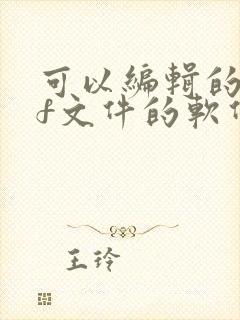 可以編輯的
f文件的軟
王玲